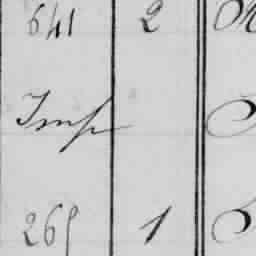 641 2
Imp
265 1